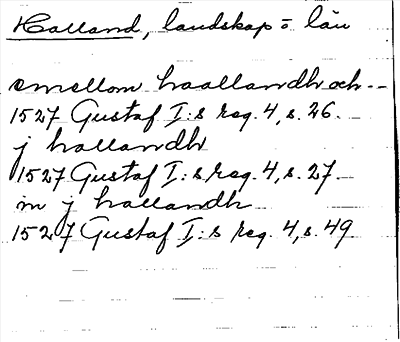 Halland, landskap o län
emellom haallandh och --
1527 Gustaf I:s reg. 4, s. 26.
j hallandh
1527 Gustaf I:s reg. 4, s. 27.
in j hallandh
1527 Gustaf I:s reg. 4, s. 49